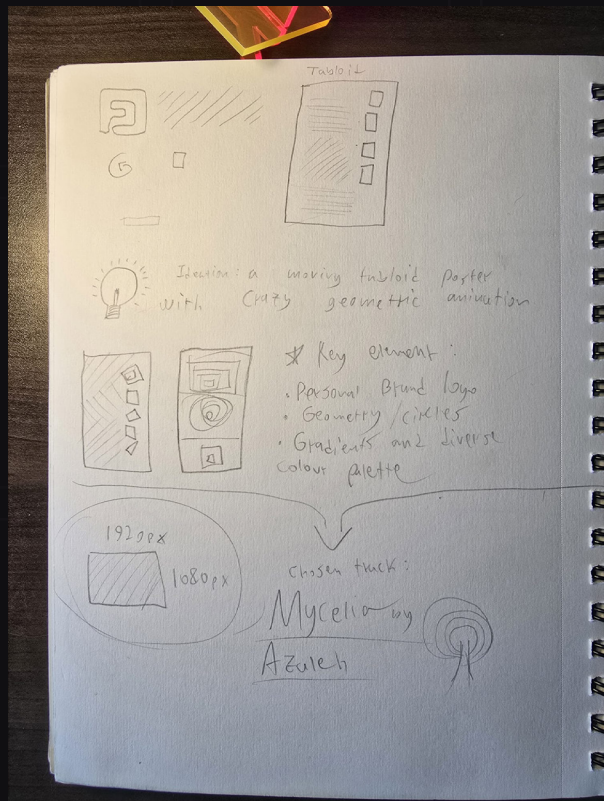 Tabloit
Ideation: a moving tabloid poster
with Crazy geometric animation
Key element:
• Personal Brand logo
• Geometry / circles
• Gradients and diverse
colour palette
1920px
1080px
Chosen track:
Mycelia by
Azaleh